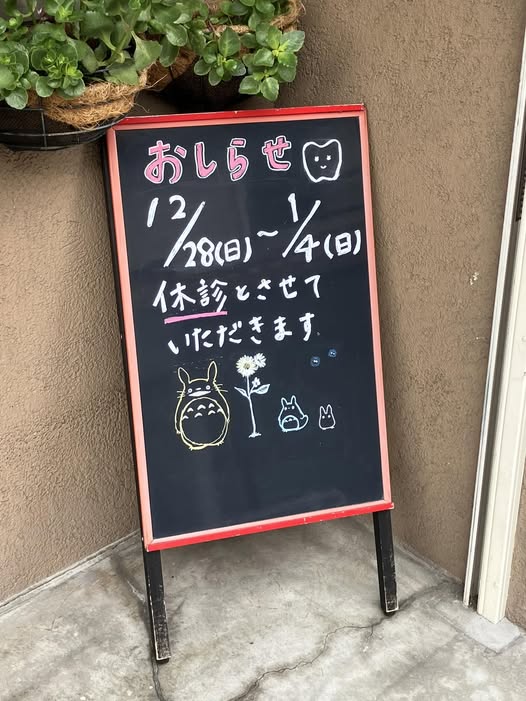 おしらせ
12/28(日)~1/4(日)
休診とさせて
いただきます